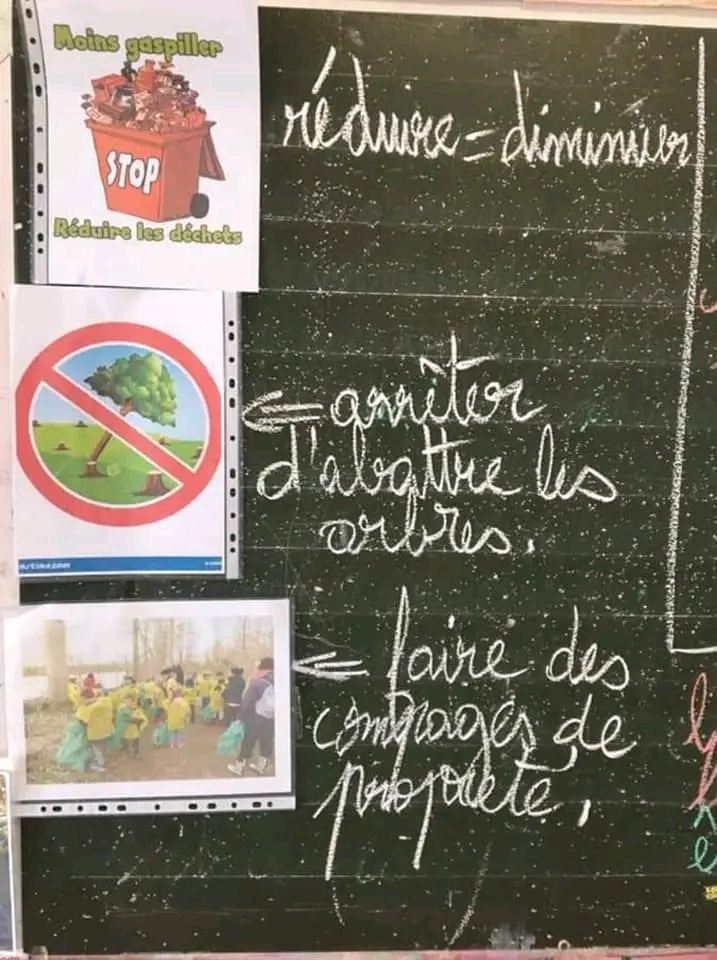 Moins gaspiller
STOP
Réduire les déchets
réduire = diminuer
arrêter
d'abattre les
arbres.
faire des
compagnes de
propreté.